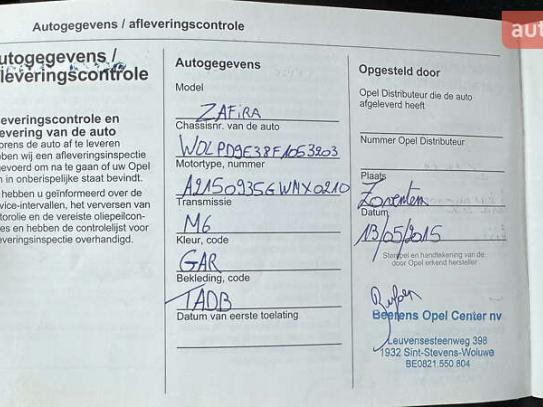 Autogegevens / afleveringscontrole
aut
utogegevens /
fleveringscontrole
everingscontrole en
evering van de auto
orens de auto af te leveren
ben wij een afleveringsinspectie
gevoerd om na te gaan of uw Opel
n in onberispelijke staat bevindt.
hebben u geïnformeerd over de
vice-intervallen, het verversen van
torolie en de vereiste oliepeilcon-
es en hebben de controlelijst voor
everingsinspectie overhandigd.
Autogegevens
Model
ZAFIRA
Chassisnr. van de auto
W0LPD9E38F1053203
Motortype, nummer
A2150935GWMX0210
Transmissie
M6
Kleur, code
GAR
Bekleding, code
TADB
Datum van eerste toelating
Opgesteld door
Opel Distributeur die de auto
afgeleverd heeft
Nummer Opel Distributeur
Plaats
Zaventem
Datum
13/05/2015
Stempel en handtekening van de
door Opel erkend hersteller
Beerens Opel Center nv
Leuvensesteenweg 398
1932 Sint-Stevens-Woluwe
BE0821.550 804